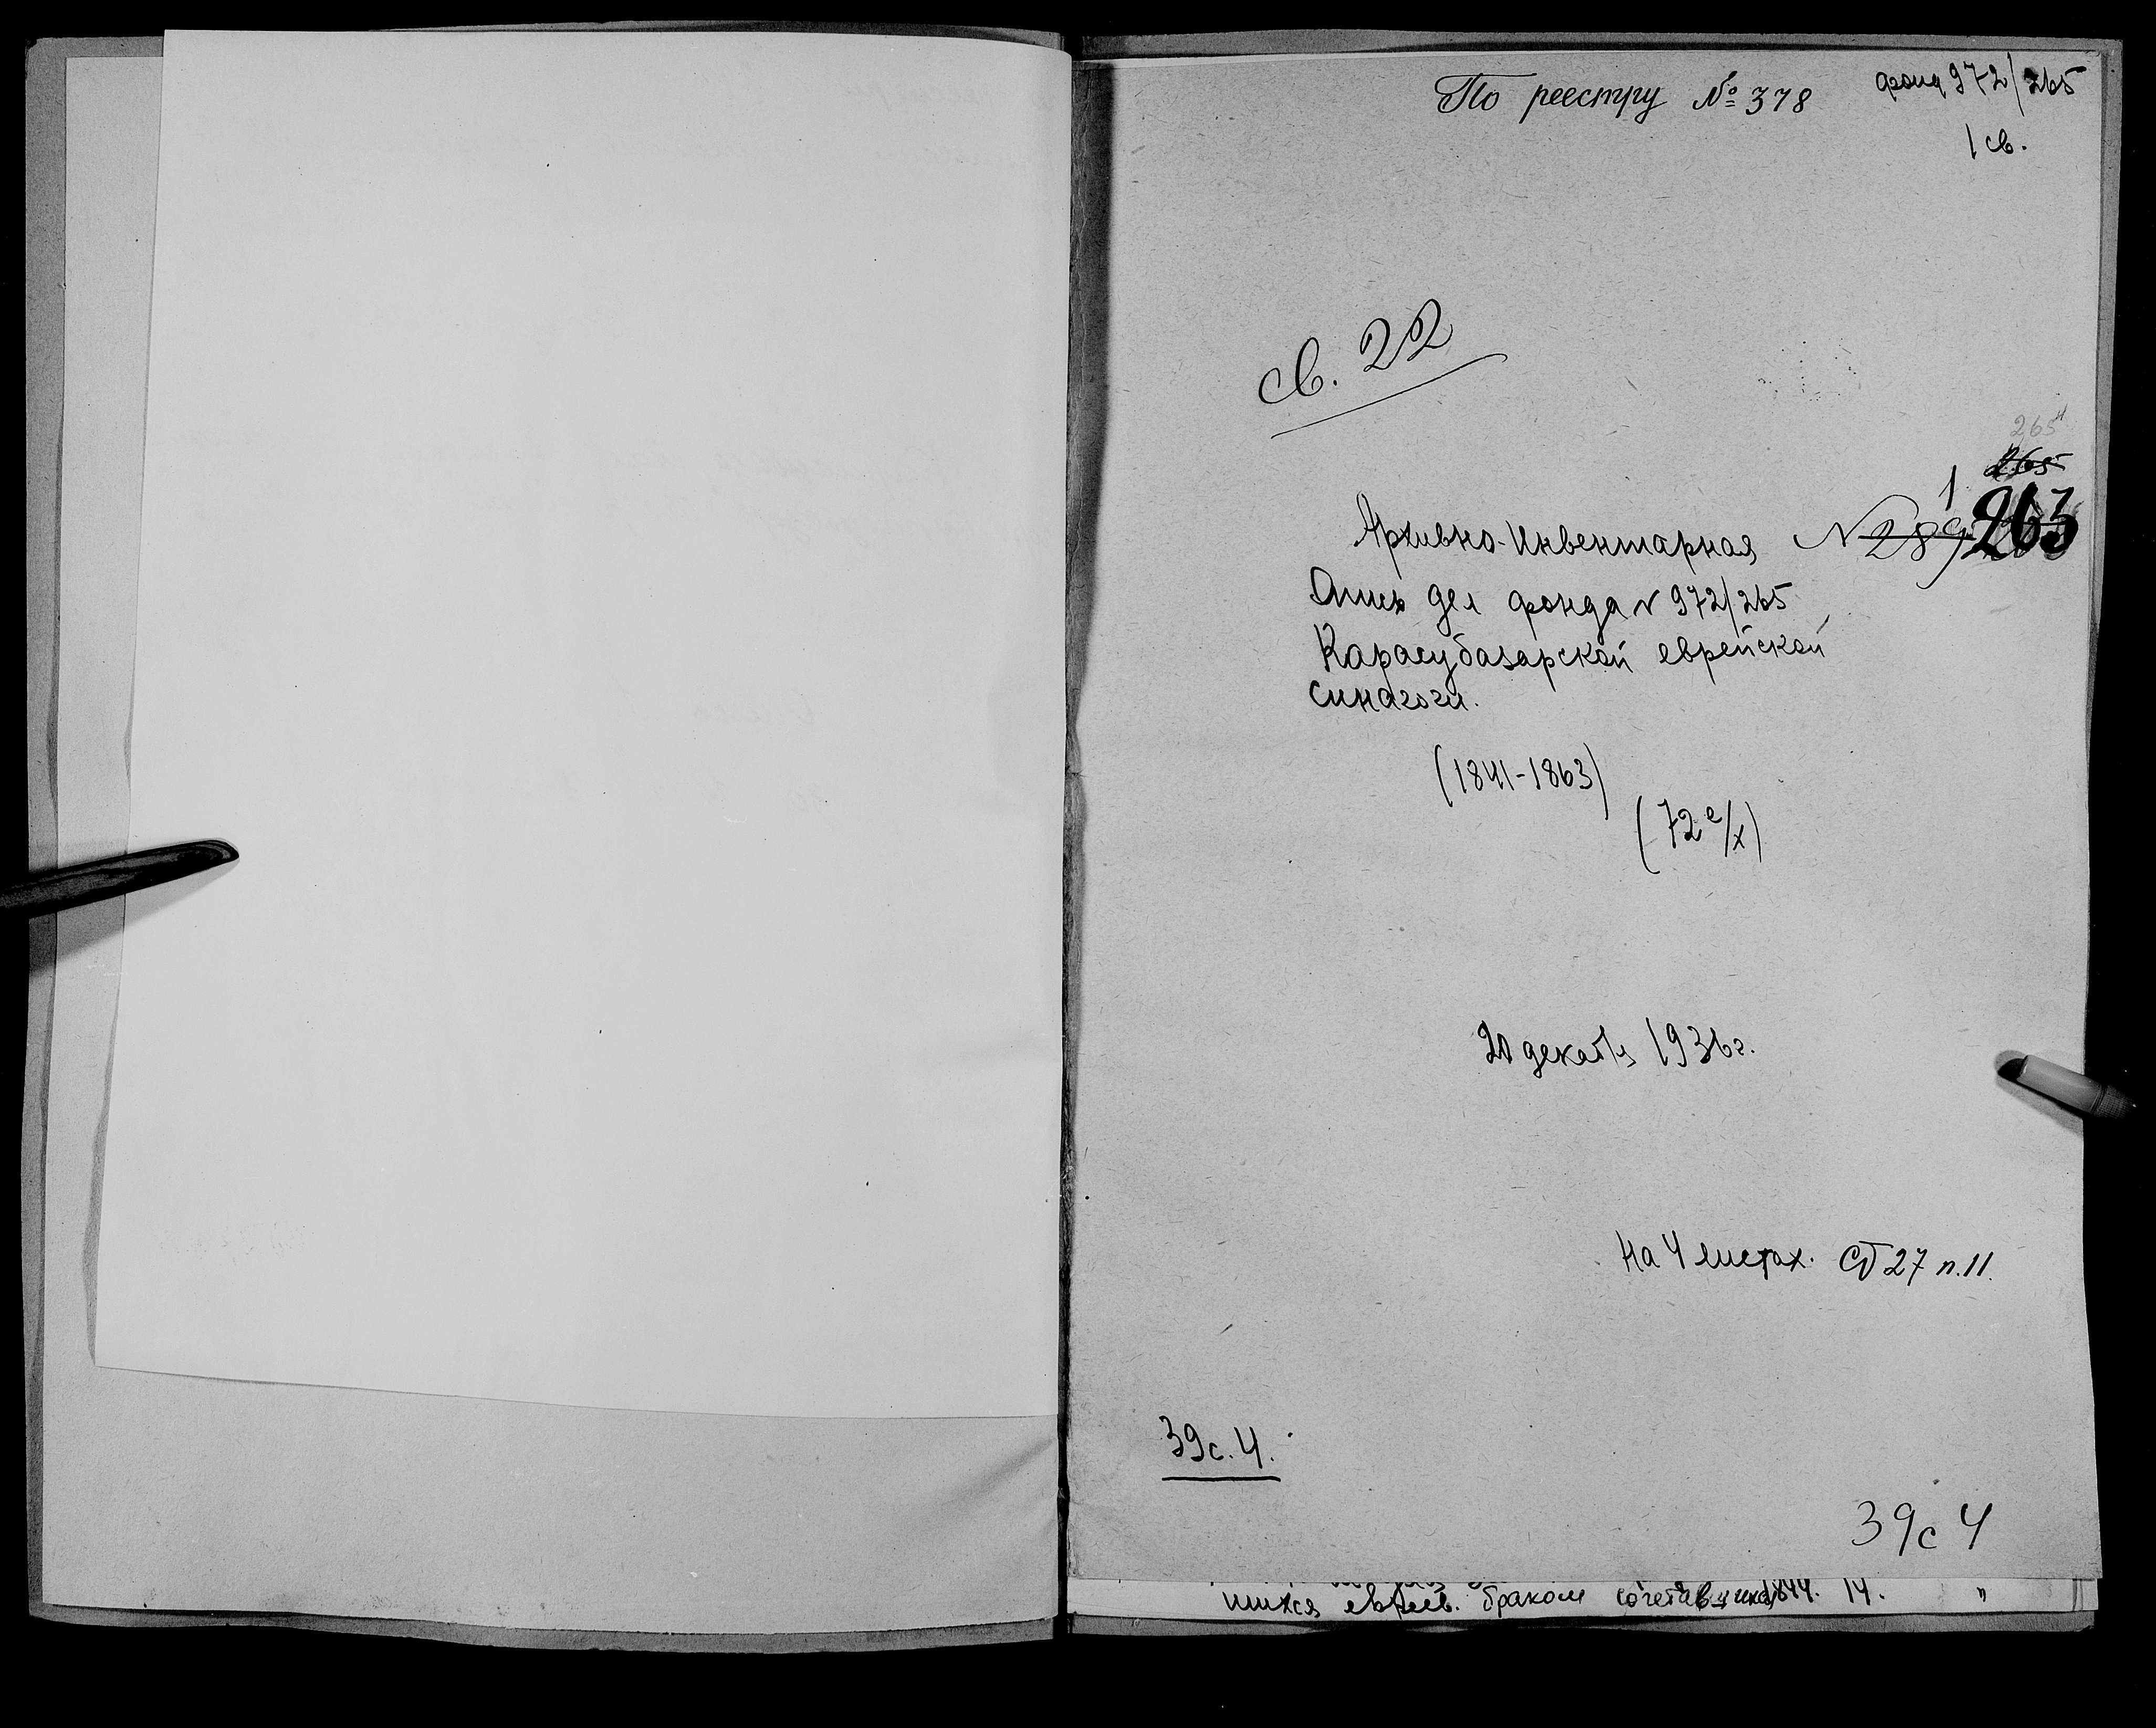 По реестру № 378
фонд 972/265
1 св.
св. 22
265
265
1
Архивно-Инвентарная N 289 263
Опись дел фонда N 972/265
Карасубазарской еврейской
синагоги.
(1841-1863)
(72 е/х)
20 декабря 1936 г.
На 4 листах. Ст 27 п. 11.
39 с. 4.
39 с 4
шихся евреев. браком 1844. 14. "